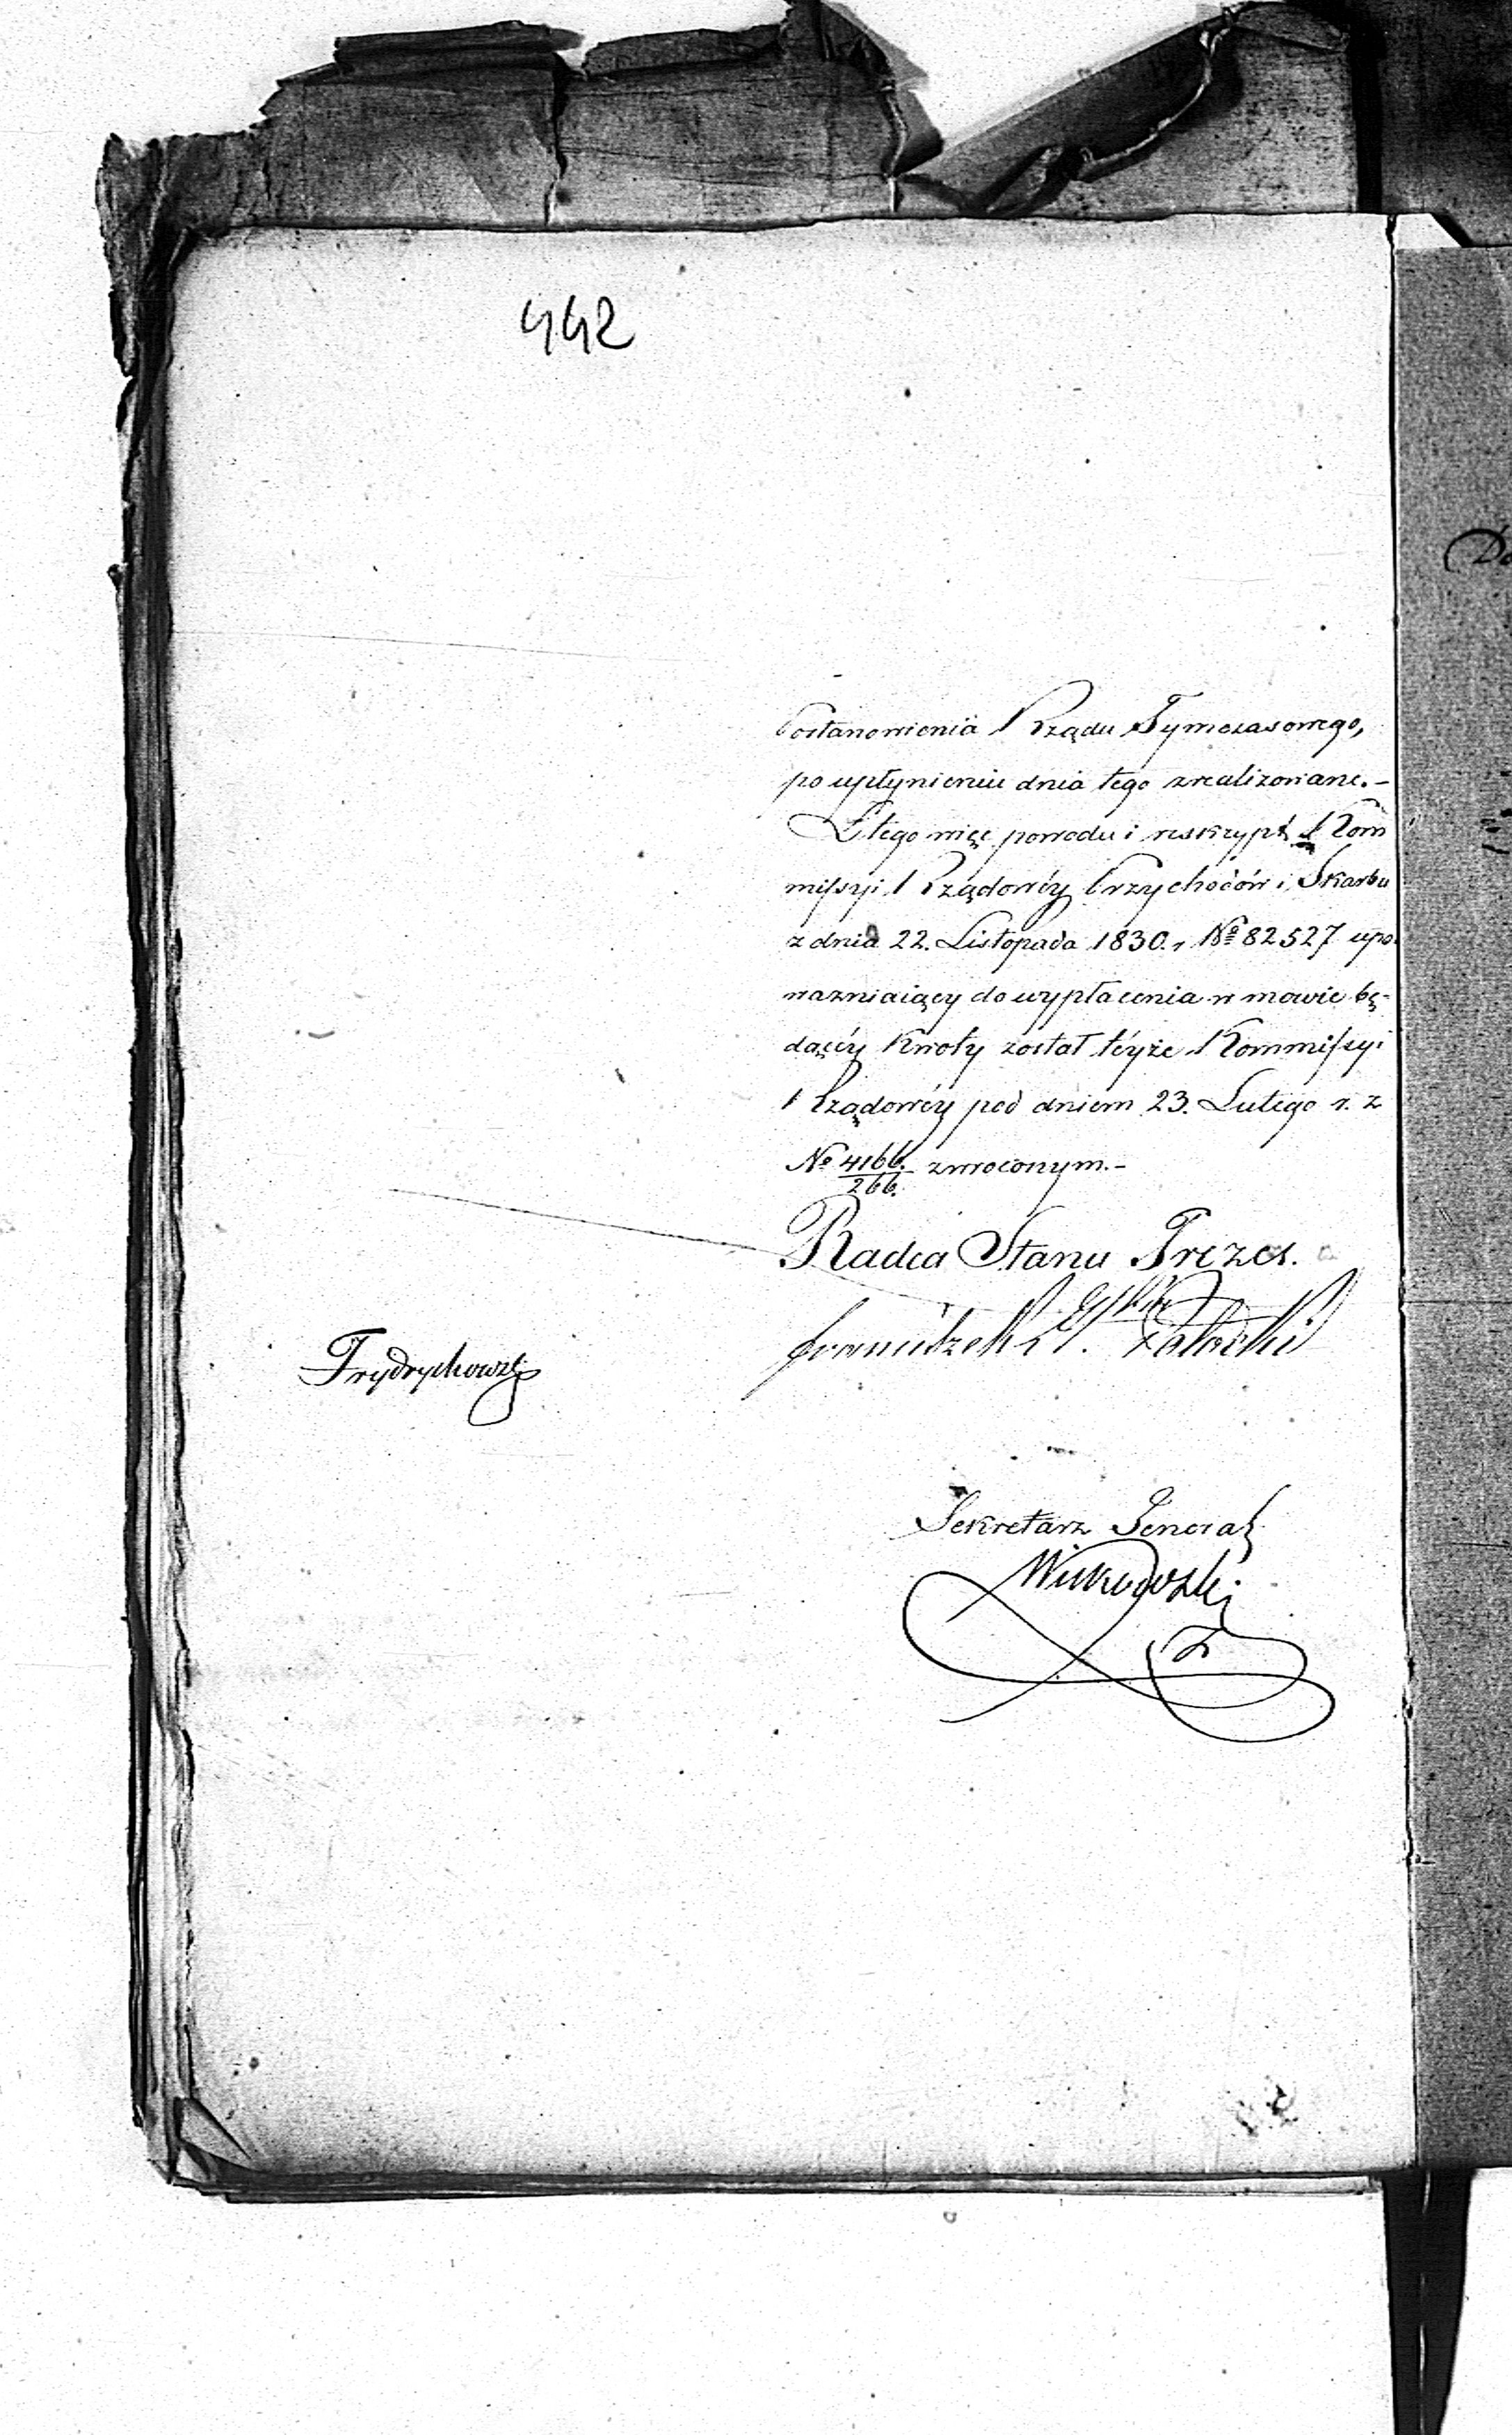 442
Postanowienia Rządu Tymczasowego,
po upłynieniu dnia tego zrealizowane.-
Z tego więc powodu i reskrypt Kom
missyi Rządowéy Przychodów i Skarbu
z dnia 22. Listopada 1830. r Nº 82527 upo
ważniaiący do wypłacenia w mowie bę-
dącéy Kwoty został téyże Kommissyi
Rządowéy pod dniem 23. Lutego r. z
Nº 4166./266. zwroconym.-
Radca Stanu Prezes.
Franciszek Potocki
Frydrychowski
Sekretarz Generaly